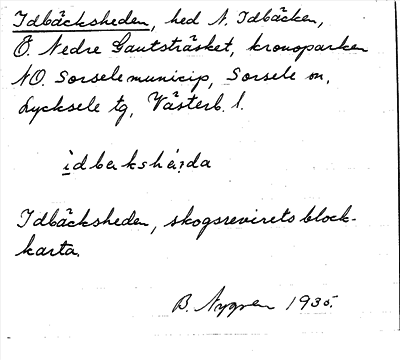 Idbäcksheden, hed N. Idbäcken,
Ö. Nedre Gautsträsket, kronoparken
NO. Sorsele municip, Sorsele sn,
Lycksele tg, Västerb. l.
Idbäcksheden, skogsrevirets block-
karta.
B. Nygren 1935.